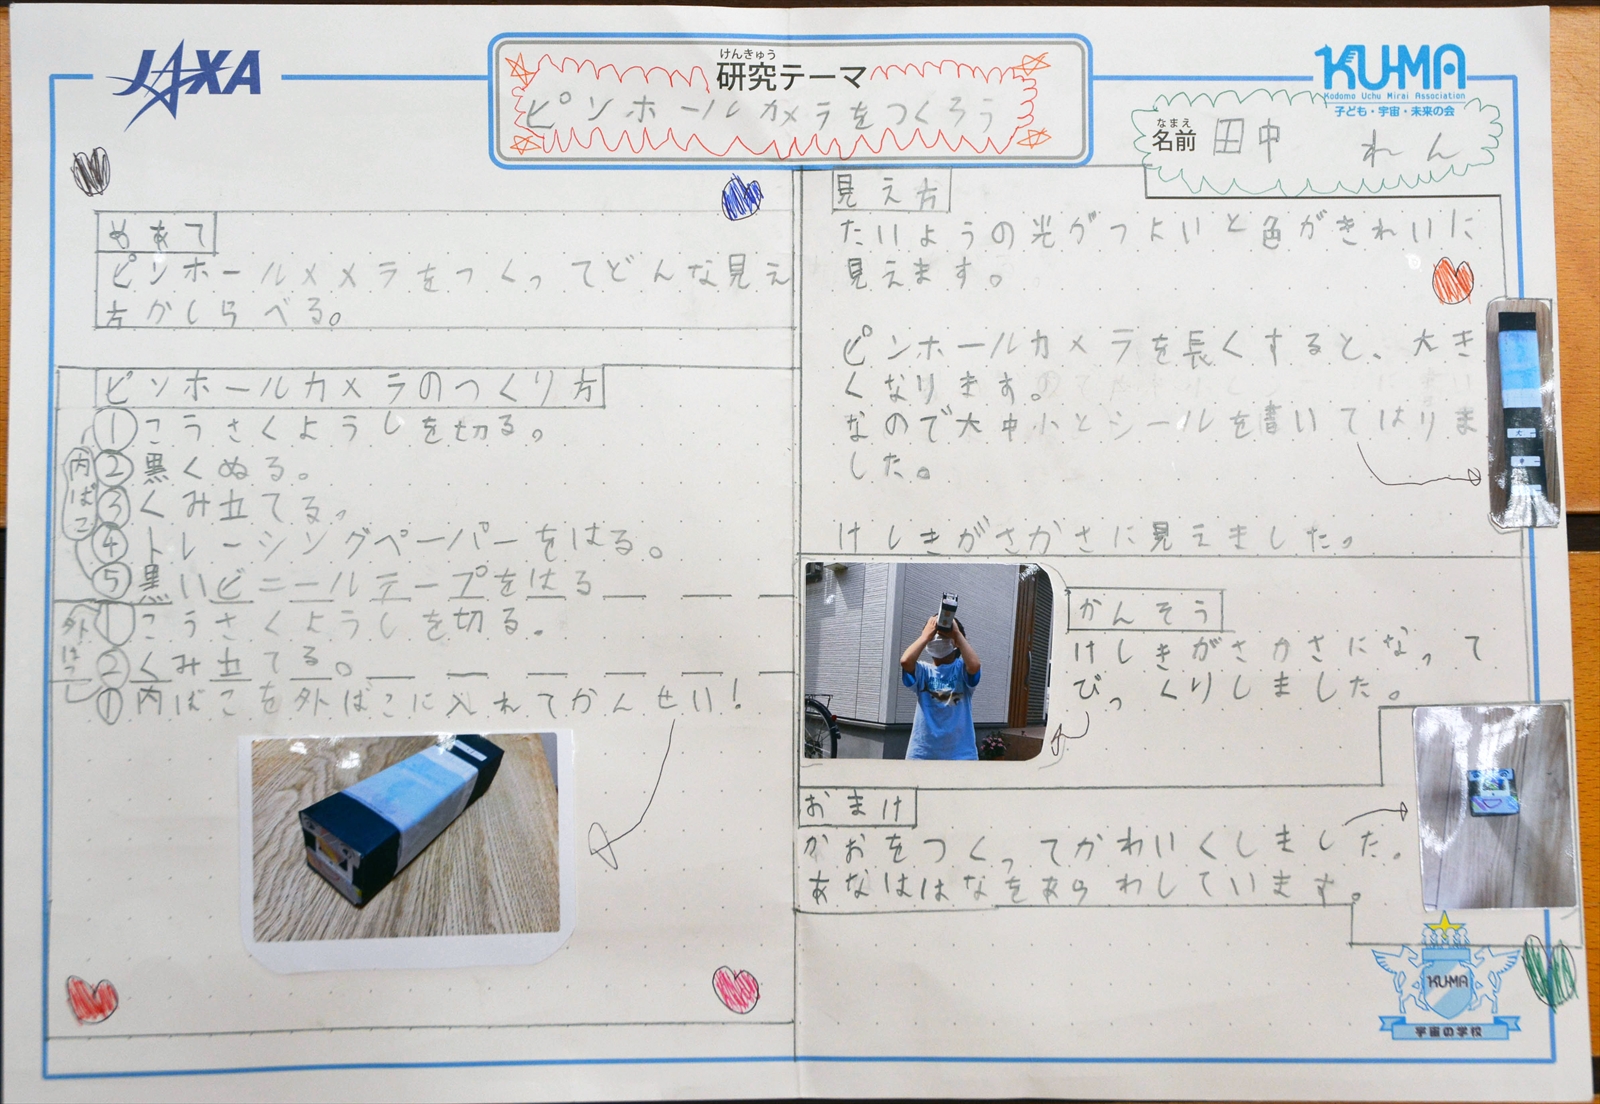 JAXA
けんきゅう
研究テーマ
ピンホールカメラをつくろう
KU-MA
Kodomo Uchu Mirai Association
子ども・宇宙・未来の会
なまえ
名前 田中 れん
めあて
ピンホールメメラをつくってどんな見え
方かしらべる。
ピンホールカメラのつくり方
内ばこ
①こうさくようしを切る。
②黒くぬる。
③くみ立てる。
④トレーシングペーパーをはる。
⑤黒いビニールテープをはる
外ばこ
①こうさくようしを切る。
②くみ立てる。
①内ばこを外ばこに入れてかんせい!
見え方
たいようの光がつよいと色がきれいに
見えます。
ピンホールカメラを長くすると、大き
くなります。
なので大中小とシールを書いてはりま
した。
けしきがさかさに見えました。
かんそう
けしきがさかさになって
びっくりしました。
おまけ
かおをつくってかわいくしました。
あなははなをあらわしています。
KU-MA
宇宙の学校